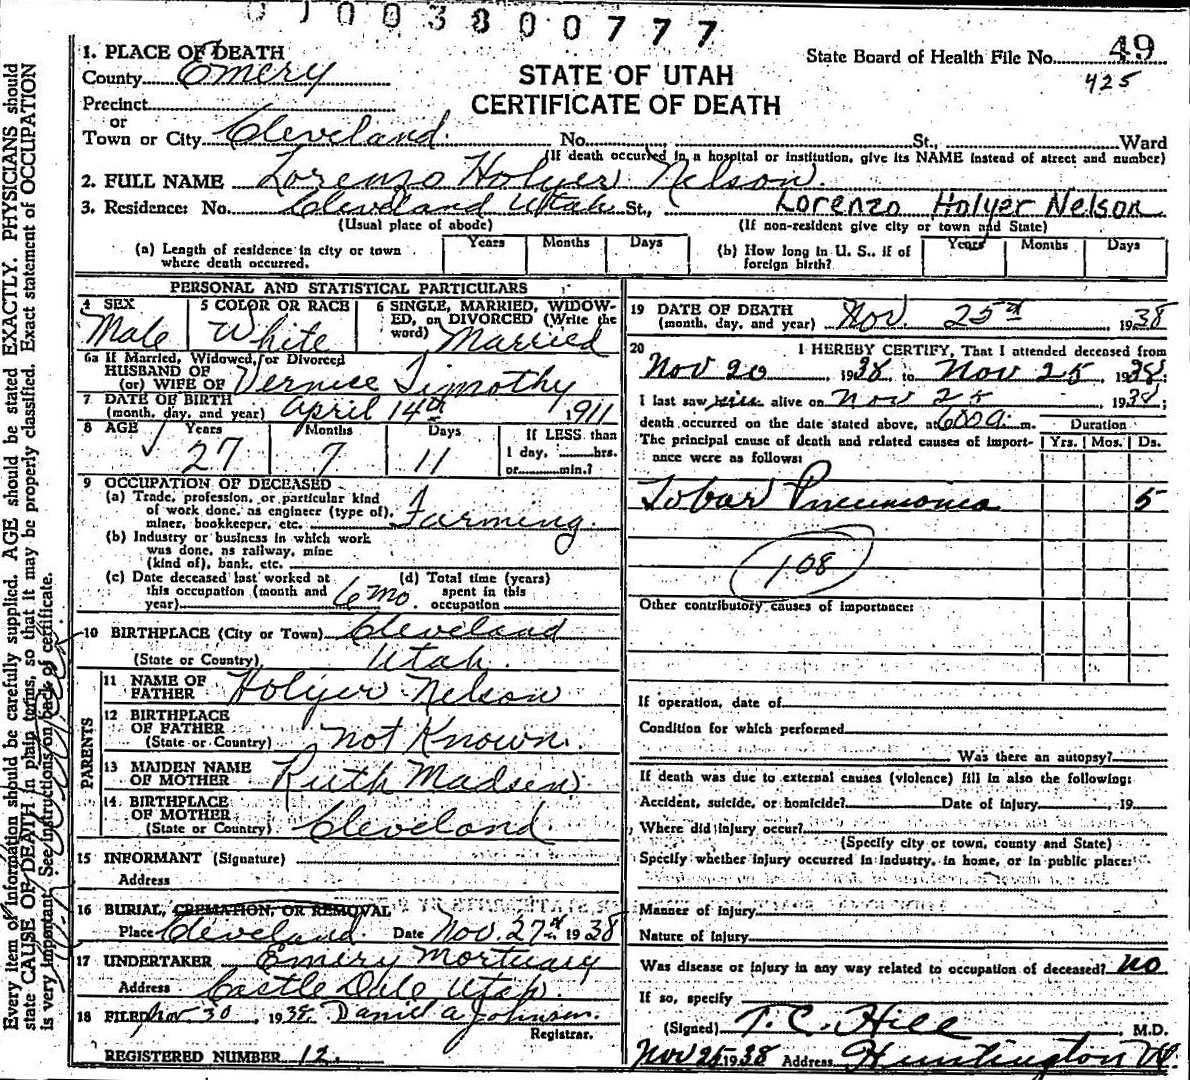 0 1 0 0 3 8 0 0 7 7 7
1. PLACE OF DEATH
County Emery
Precinct
or
Town or City Cleveland. No. St., Ward
(If death occurred in a hospital or institution, give its NAME instead of street and number)
STATE OF UTAH
CERTIFICATE OF DEATH
State Board of Health File No. 49
425
2. FULL NAME Lorenzo Holyer Nelson.
3. Residence: No. Cleveland Utah St., Lorenzo Holyer Nelson
(Usual place of abode) (If non-resident give city or town and State)
(a) Length of residence in city or town where death occurred. Years Months Days
(b) How long in U. S., if of foreign birth? Years Months Days
PERSONAL AND STATISTICAL PARTICULARS
4 SEX Male
5 COLOR OR RACE White
6 SINGLE, MARRIED, WIDOWED, or DIVORCED (Write the word) Married
6a If Married, Widowed, or Divorced
HUSBAND OF
(or) WIFE OF Vernice Timothy
7 DATE OF BIRTH
(month, day, and year) April 14th 1911
8 AGE Years 27 Months 7 Days 11
If LESS than
1 day, hrs.
or min.?
9 OCCUPATION OF DECEASED
(a) Trade, profession, or particular kind
of work done, as engineer (type of),
miner, bookkeeper, etc. Farming.
(b) Industry or business in which work
was done, as railway, mine
(kind of), bank, etc.
(c) Date deceased last worked at
this occupation (month and
year) 6 mo.
(d) Total time (years)
spent in this
occupation
10 BIRTHPLACE (City or Town) Cleveland
(State or Country) Utah.
PARENTS
11 NAME OF
FATHER Holyer Nelson
12 BIRTHPLACE
OF FATHER
(State or Country) not Known.
13 MAIDEN NAME
OF MOTHER Ruth Madsen
14 BIRTHPLACE
OF MOTHER
(State or Country) Cleveland.
15 INFORMANT (Signature)
Address
16 BURIAL, CREMATION, OR REMOVAL
Place Cleveland. Date Nov. 27th 1938
17 UNDERTAKER Emery Mortuary
Address Castle Dale Utah.
18 FILED Nov 30 1938. Daniel A Johnson.
Registrar.
REGISTERED NUMBER 12.
19 DATE OF DEATH
(month, day, and year) Nov. 25th, 1938
20 I HEREBY CERTIFY, That I attended deceased from
Nov 20, 1938 to Nov 25, 1938;
I last saw him alive on Nov 25, 1938;
death occurred on the date stated above, at 600 a. m.
The principal cause of death and related causes of importance were as follows:
Duration
Yrs. Mos. Ds.
Lobar Pneumonia 5
108
Other contributory causes of importance:
If operation, date of
Condition for which performed
Was there an autopsy?
If death was due to external causes (violence) fill in also the following:
Accident, suicide, or homicide? Date of injury , 19
Where did injury occur?
(Specify city or town, county and State)
Specify whether injury occurred in industry, in home, or in public place:
Manner of injury
Nature of injury
Was disease or injury in any way related to occupation of deceased? no
If so, specify
(Signed) T. C. Hill, M.D.
Nov 25 1938 Address Huntington Ut.
Every item of information should be carefully supplied. AGE should be stated EXACTLY. PHYSICIANS should
state CAUSE OF DEATH in plain terms, so that it may be properly classified. Exact statement of OCCUPATION
is very important. See instructions on back of certificate.